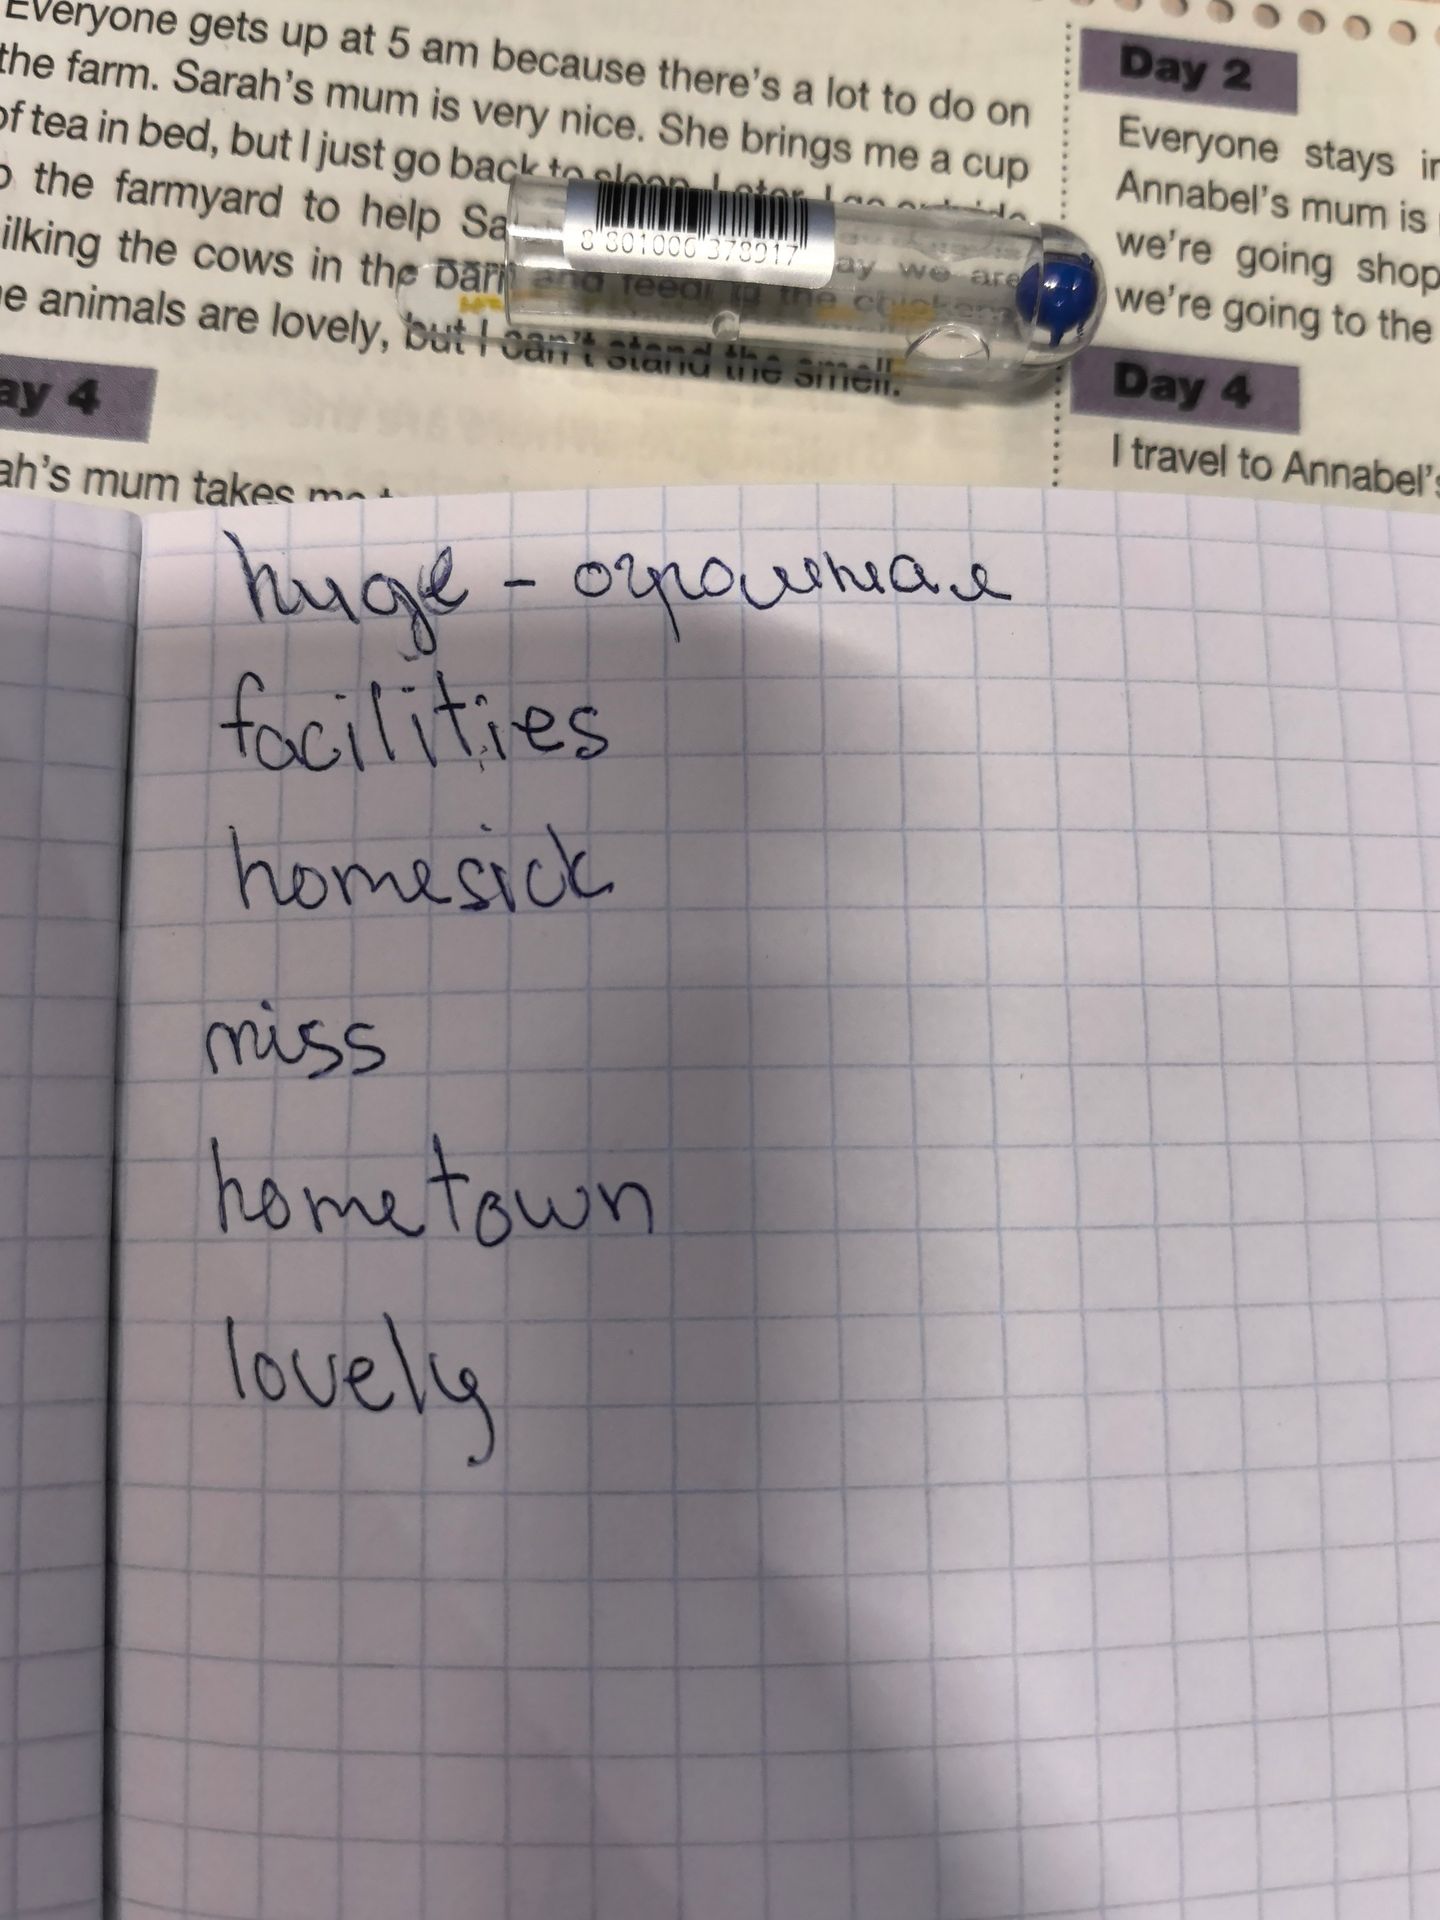 Everyone gets up at 5 am because there's a lot to do on
the farm. Sarah's mum is very nice. She brings me a cup
of tea in bed, but I just go back to sleep. Later, I go outside
the farmyard to help
the cows in the barn and feeding the chickens
animals are lovely, but I can't stand the smell.
8 801006 378917
ay we are
ay 4
ah's mum takes me
Day 2
Everyone stays
Annabel's mum is
we're going shop
we're going to the
Day 4
I travel to Annabel's
huge - огромная
facilities
homesick
miss
hometown
lovely